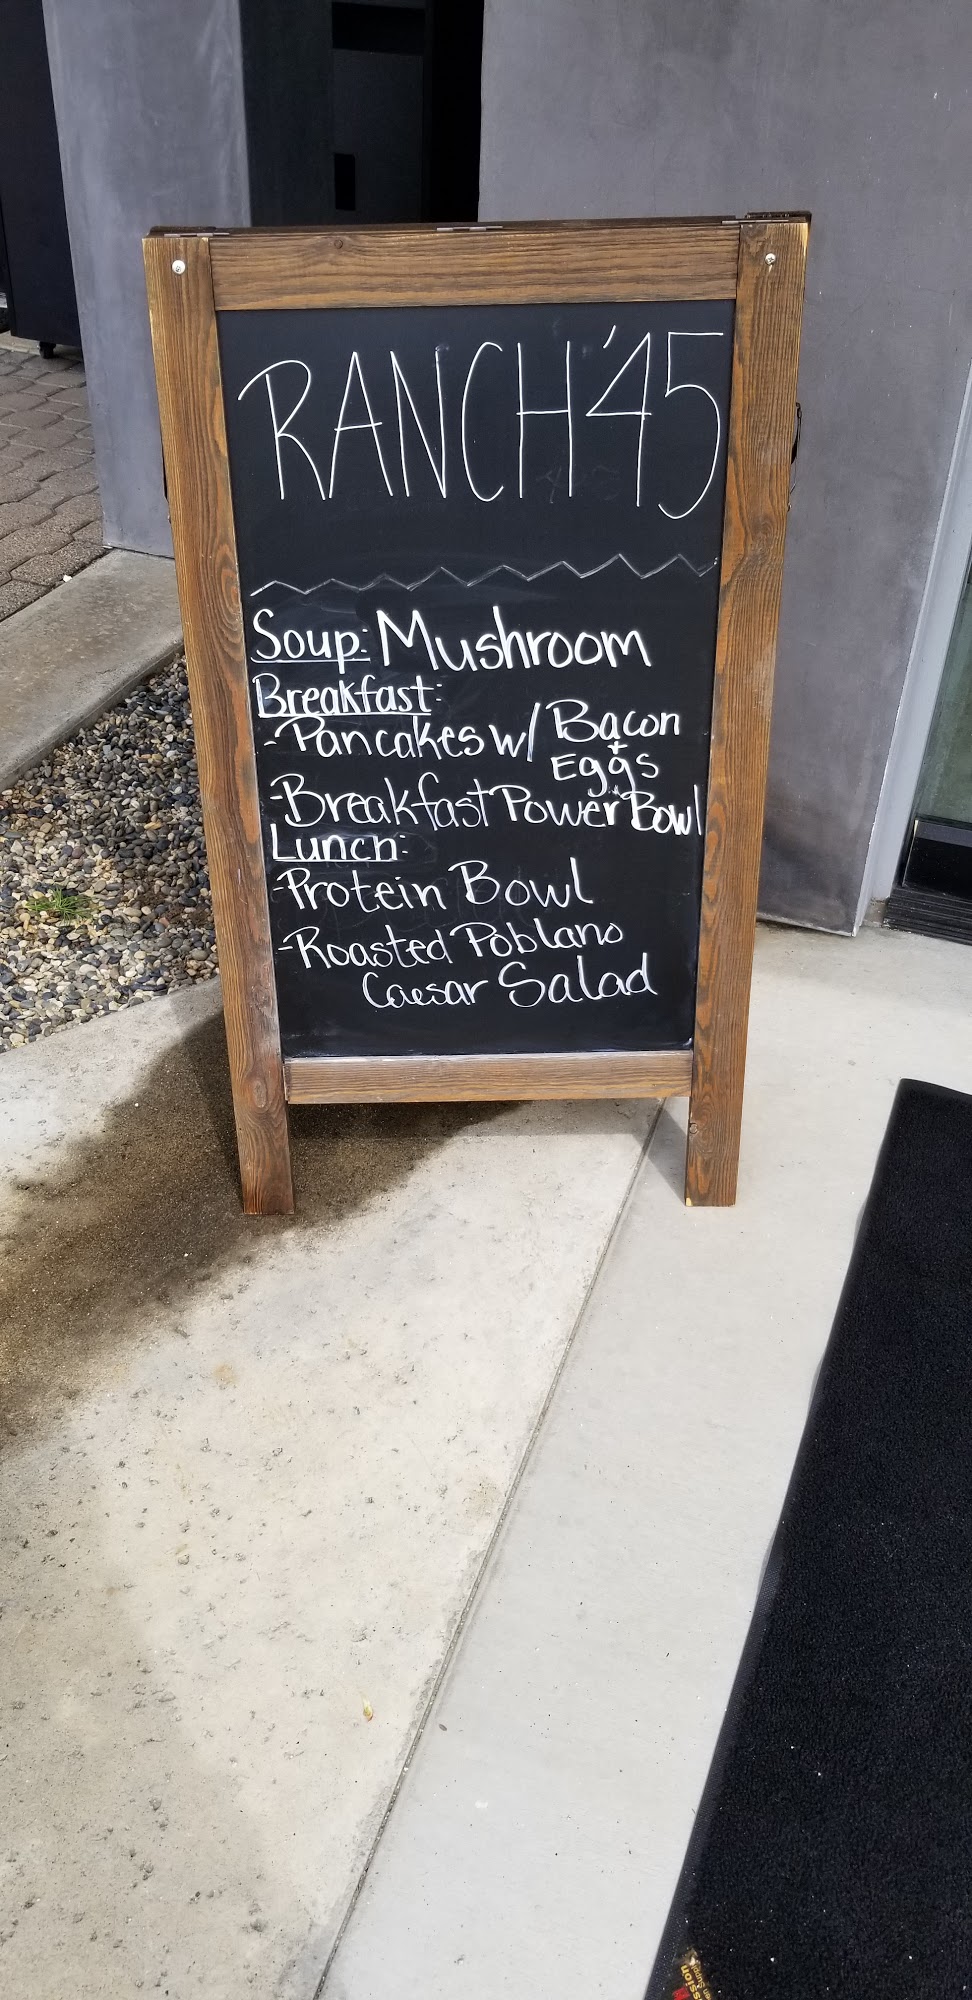 RANCH '45
Soup: Mushroom
Breakfast:
-Pancakes w/ Bacon
+
Eggs
-Breakfast Power Bowl
Lunch:
-Protein Bowl
-Roasted Poblano
Caesar Salad